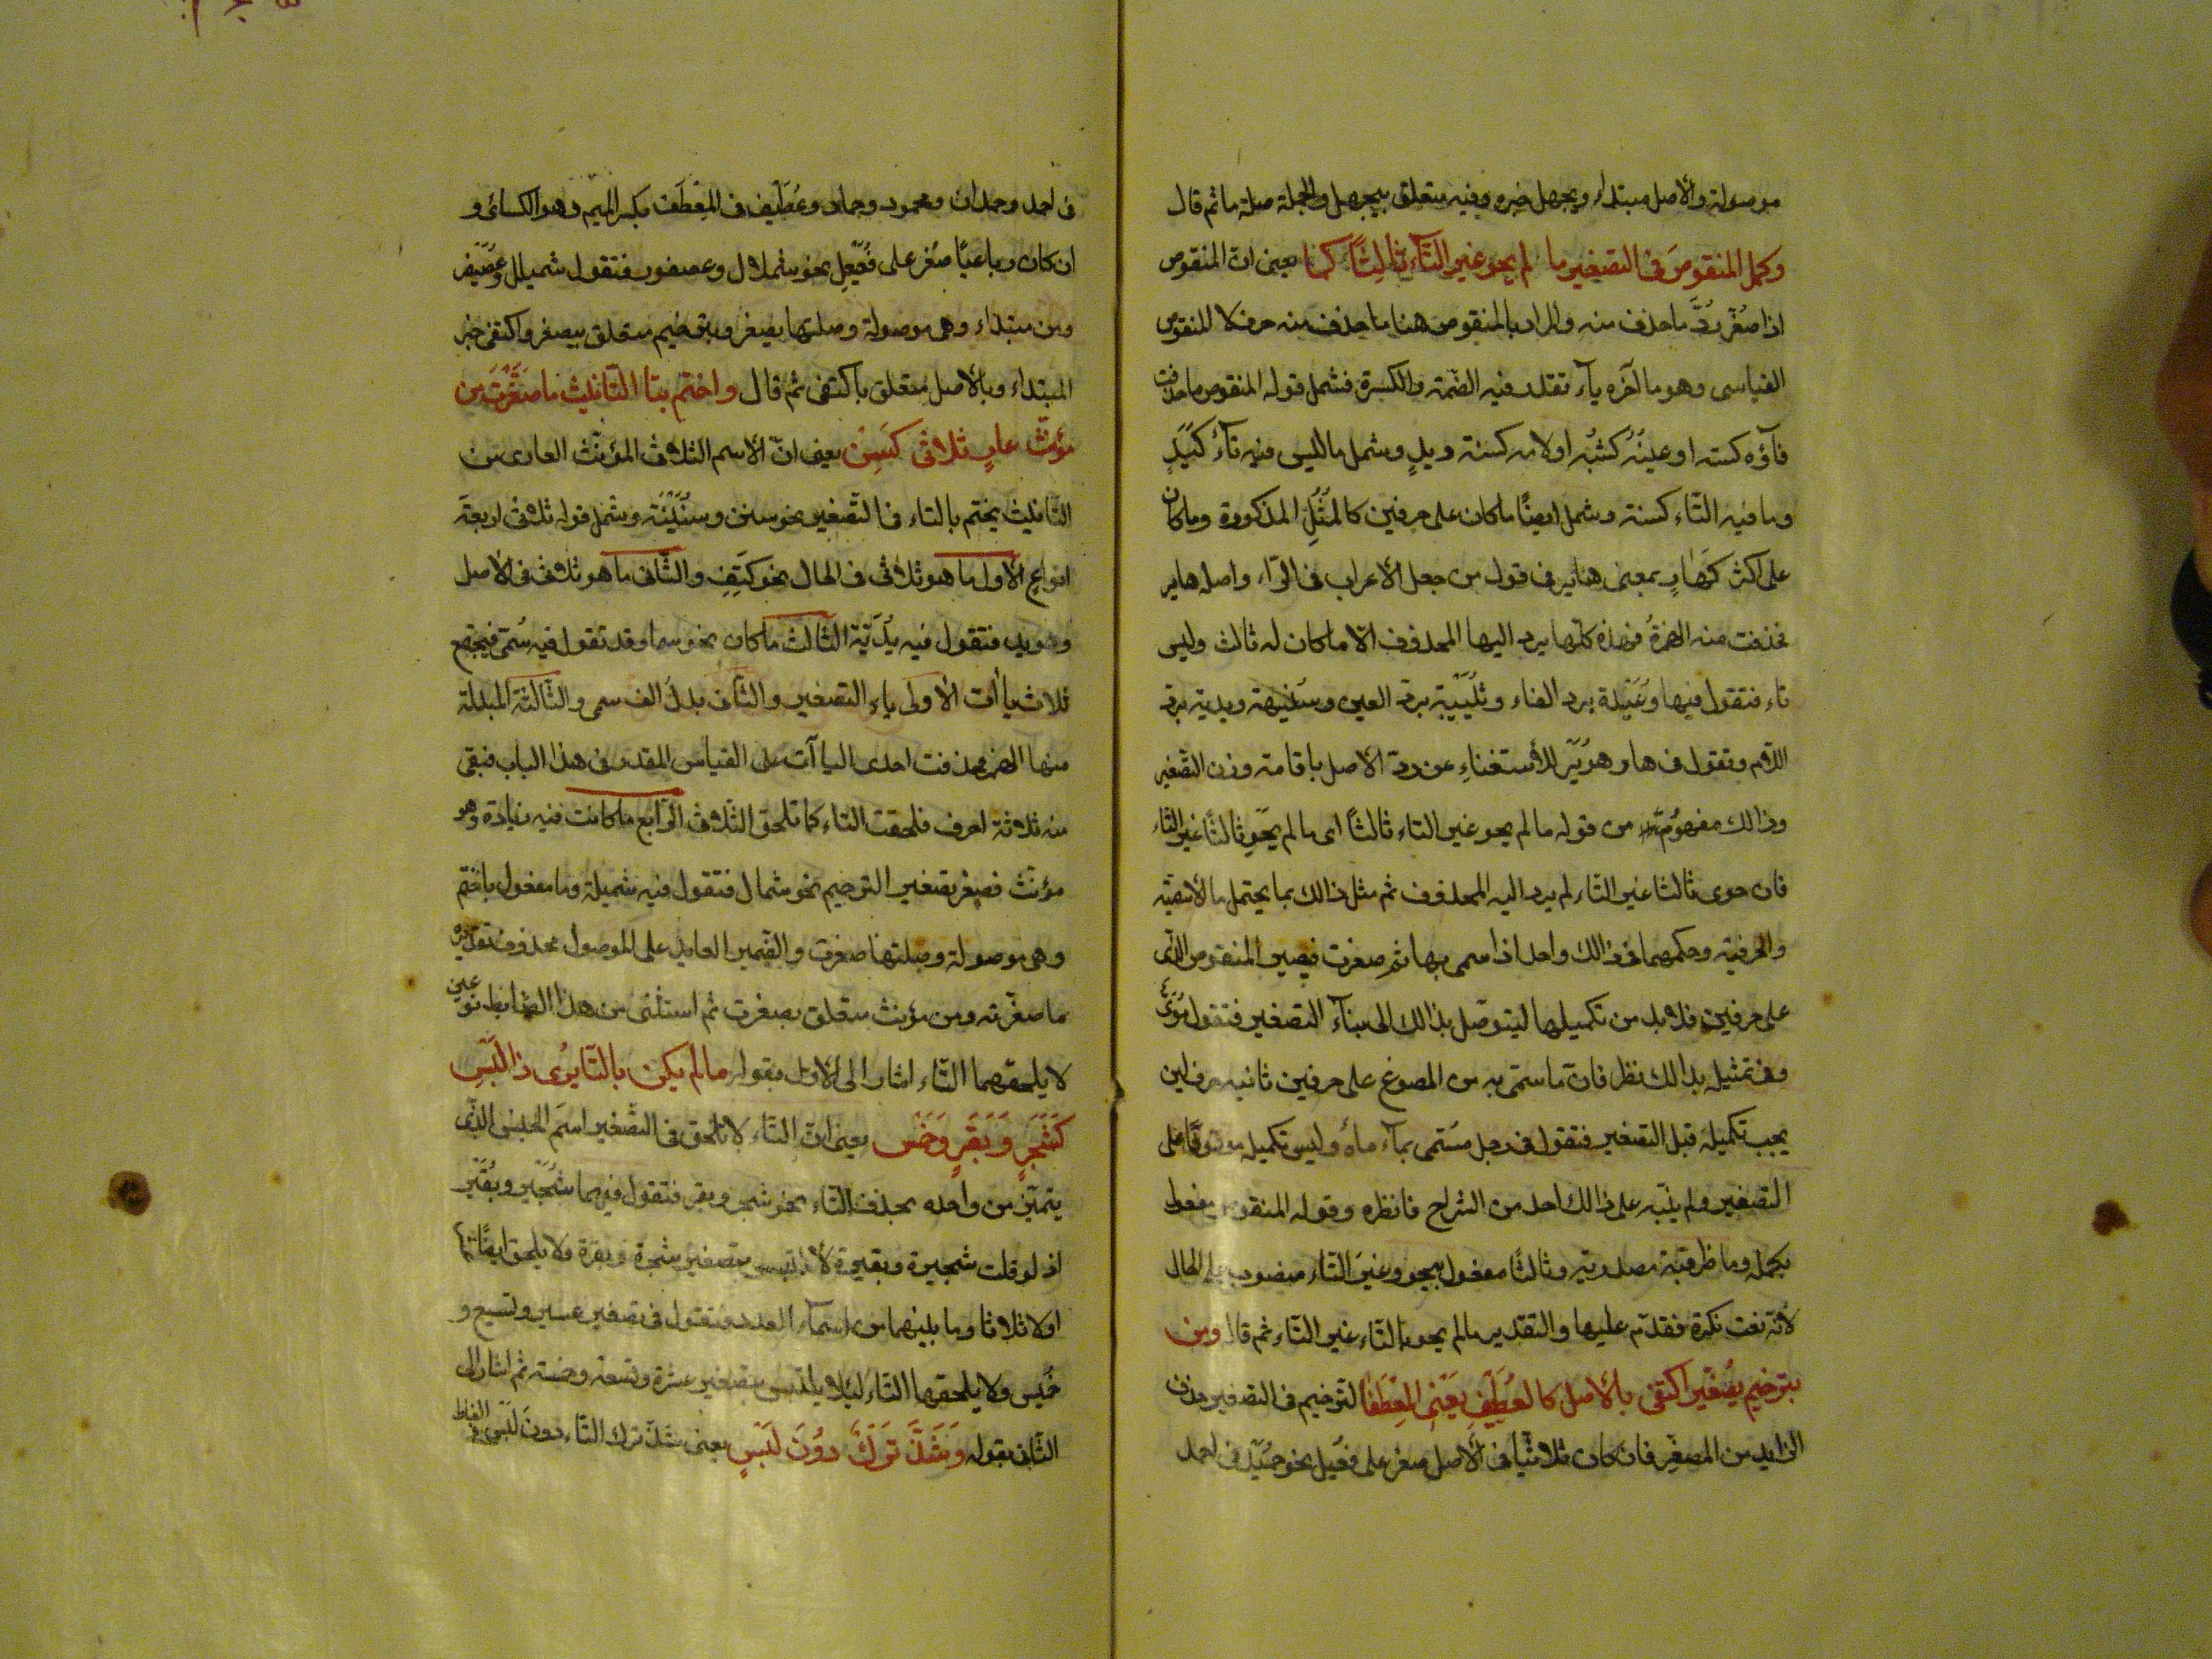 موصولة والاصل مبتداء ويجهل خبره وفيه متعلق بيجهل والجملة صلة ما ثم قال
وكمل المنقوصَ فى التصغير ما لم يحو غير التآء ثالثاً كما يعنى ان المنقوص
اذا صُغّر رُدَّ ما حذف منه والمراد بالمنقوص هنا ما حذف منه حرف لا المنقوص
القياسى وهو ما آخره يآء تقدر فيه الضمة والكسرة فشمل قوله المنقوص ما حذفت
فآؤه كسته او عينُه كشبُه او لامه كسنة ويدٍ وشمل ما لليس فيه تآء كيَدٍ
وما فيه التّاء كسنة وشمل ايضًا ما كان على حرفين كالمُثُلِ المذكورة وما كان
على اكثر كَهَارٍ بمعنى هائر فى قول من جعل الاعراب فى الرّاء واصله هاير
فحذفت منه الهمزةُ فهذه كلّها يرد اليها المحذوف الّا ما كان له ثالث وليس
تاء فتقول فيها وُعَيْدة برد الفاء وثُبَيْبَة بردّ العين وسُنَيْهة ويدية بردّ
اللّام وتقول فى هار هُوَيْر للأستغناءِ عن ردّ الاصل باقامة وزن التّصغير
وذالك مفهوم من قوله ما لم يحو غير التاء ثالثاً اى ما لم يَحْوِ ثالثًا غير التاء
فان حوى ثالثا غير التّاء لم يرد اليه المحذوف ثم مثل ذالك بما يحتمل ما الأسميّة
والحرفية وحكمهما فى ذالك واحد اذا سمى بها ثم صغرت فيصير المنقوص الذّى
على حرفين فلا بد من تكميلها ليتوصّل بذالك الى بنآء التصغير فتقول مُوَىّ
وفى تمثيله بذالك نظر فانّ ما سمّى به من المصوغ على حرفين ثانيه حرف لين
يجب تكميله قبل التصغير فتقول فى رجل مسّمى بمآء ماءٌ وليس تكميله موقوفًا على
التصغير ولم ينّبه على ذالك احد من الشراح فانظره وقوله المنقوص مفعول
بكمل وما ظرفيّة مصدرية وثالثًا مفعول بيحو وغيرَ التّاء منصوب على الحال
لأنّه نعت نكرة فقدّم عليها والتقدير ما لم يحو ثالثاء غير التّاء ثم قال ومن
بترخيم يُصَغِّر اكتفى بالأصل كالعُطَيْفِ يَعْنى المِعْطَفا التّرخيم فى التصغير حذف
الزايد من المصغّر فان كان ثلاثيّا فى الأصل صغر على فُعَيْل نحو حُمَيْد فى احمد
فى احمد وحمدان ومحمود وحماد وعُطَيْف فى المِعْطَف بكسر الميم وهو الكسائى و
ان كان رباعيًّا صُغّر على فُعَيْعِل نحو شملال وعصفور فتقول شميلل وعُصَيْفر
ومن مبتداء وهى موصولة وصلتها يصغر وبترخيم متعلق بيصغر واكتفى خبر
المبتداء وبالأصل متعلق باكتفى ثم قال واختم بتا التّأنيث ما صَغَّرْتَ من
مؤنّث عارٍ ثلاثى كَسِنْ يعنى انّ الأسم الثلاثى المؤنّث العارى من
التّأنيث يختم بالتاء فى التّصغير نحو سنّ وسُنَيْنَة وشمل قوله ثلاثى اربعة
انواع الأول ما هو ثلاثى فى الحال نحو كَتِفٍ والثّانى ما هو ثلاثى فى الاصل
وهو يد فتقول فيه يُدَيّة الثالث ما كان نحو سماء وقد تقول فيه سُمَىّ فيجتمع
ثلاث ياأت الأولى ياء التصغير والثانى بدل الف سمى والثّالثة المبدلة
منها الهمزة فحذفت احدى اليا آت على القياس المقدر فى هذا الباب فبقى
منه ثلاثة احرف فلحقت التاء كما تلحق الثلاثى الرّابع ما كانت فيه زيادة وهو
مؤنّث فصغر تصغير الترخيم نحو شمال فتقول فيه شميلة وما مفعول باختم
وهى موصولة وصلتها صغرت والضّمير العايد على الموصول محذوف تقديره
ما صغّرته ومن مؤنث متعلق بصغرت ثم استثنى من هذا الضّابط نوعين
لا يلحقهما التّاء اشار الى الأول بقوله ما لم يكن بالتّا يُرى ذا لَبْسِ
كَشَجَرٍ وَبَقَرٍ وَخَمْسِ يعنى انّ التاء لا تلحق فى التصغير اسمَ الجنس الذّى
يتميّز من واحده بحذف التّاء نحو شجر وبقر فتقول فيهما شُجَيْر وبُقَيْر
اذ لو قلت شجيرة وبقيرة لألتبس بتصغير شجرة وبقرة ولا يلحق ايضًا
اولا ثلاثا وما بينهما من اسمآء العدد فتقول فى تصغير عسير وتسيع و
خُميس ولا يلحقها التاء ليلا يلتبس بتصغير عشرة وتسعة وخمسة ثم اشار الى
الثّانى بقوله وَشَذَّ تَرْكٌ دوُنَ لَبْسٍ يعنى شذّ ترك التّاء دون لَبْس فى الفاظ